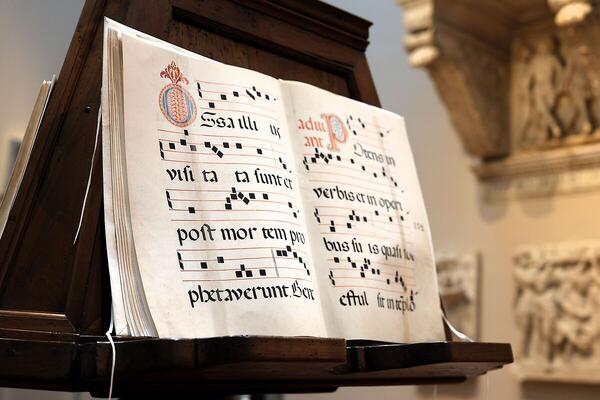 OSsa illi us
visi ta ta sunt et
post mor tem pro
phetaverunt. Ben
ant POtens in
verbis et in operi
bus su is quasi
efful sit in teplo